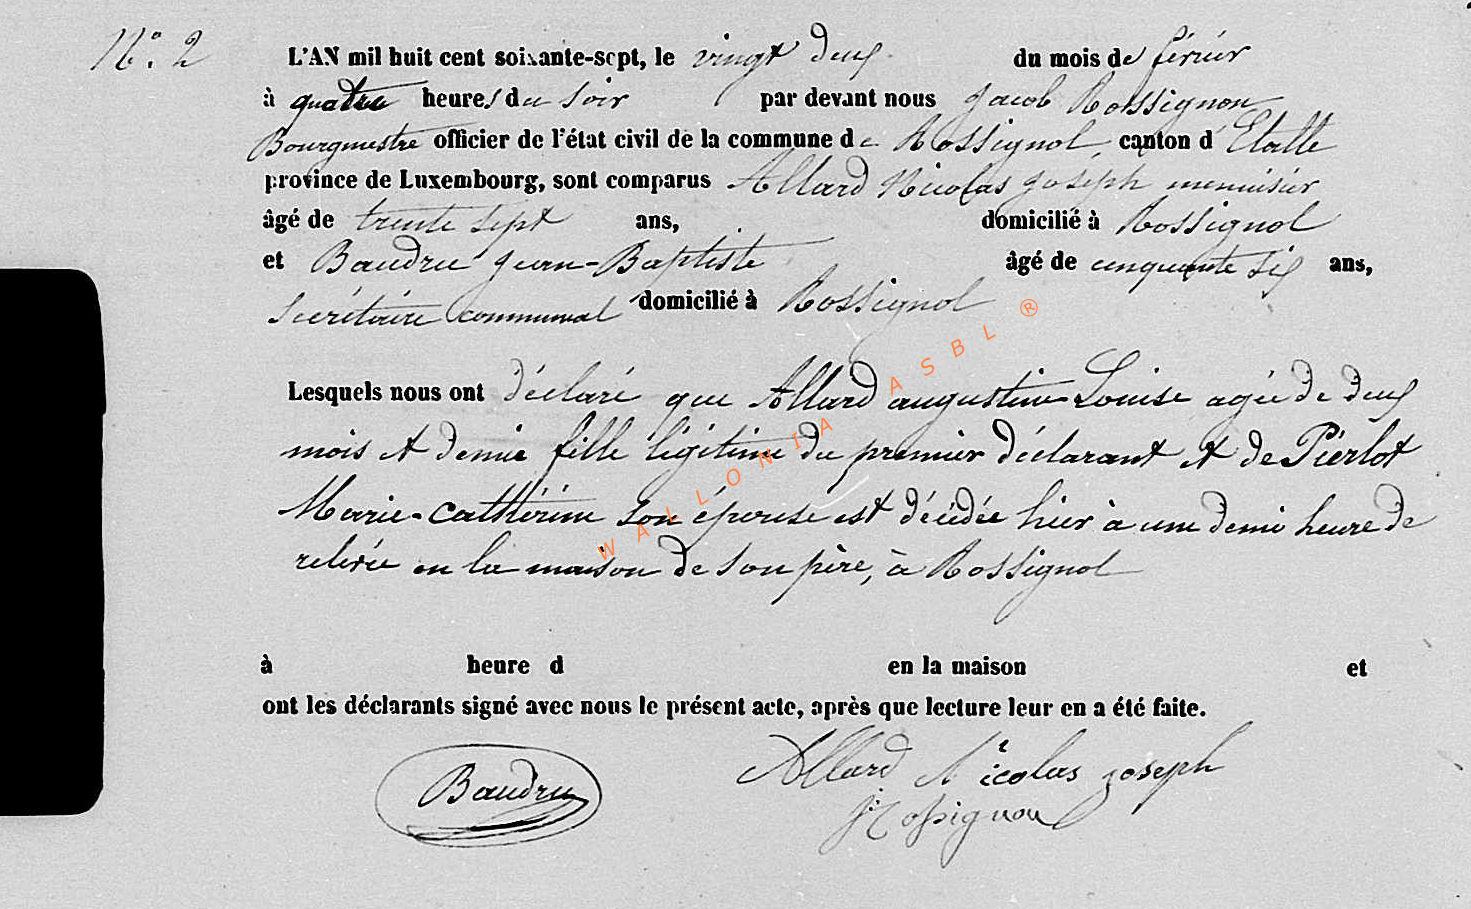 N°. 2
L'AN mil huit cent soixante-sept, le vingt deux du mois de février
à quatre heures du soir par devant nous Jacob Rossignon
Bourgmestre officier de l'état civil de la commune de Rossignol, canton d'Etalle
province de Luxembourg, sont comparus Allard Nicolas Joseph menuisier
âgé de trente sept ans, domicilié à Rossignol
et Baudru Jean-Baptiste âgé de cinquante six ans,
Secrétaire communal domicilié à Rossignol
Lesquels nous ont déclaré que Allard augustine-Louise agée de deux
mois et demie fille légitime du premier déclarant et de Pierlot
Marie-Cathérine son épouse est décédée hier à une demi heure de
relevée en la maison de son père, à Rossignol
à heure d en la maison et
ont les déclarants signé avec nous le présent acte, après que lecture leur en a été faite.
Baudru Allard Nicolas joseph
Rossignon
WALLONIA ASBL ®